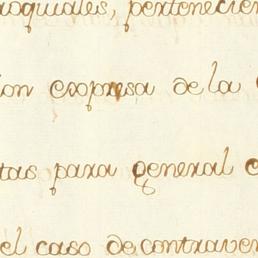 roquiales, pertenecien
ion expresa de la
tas para general
el caso de contraven